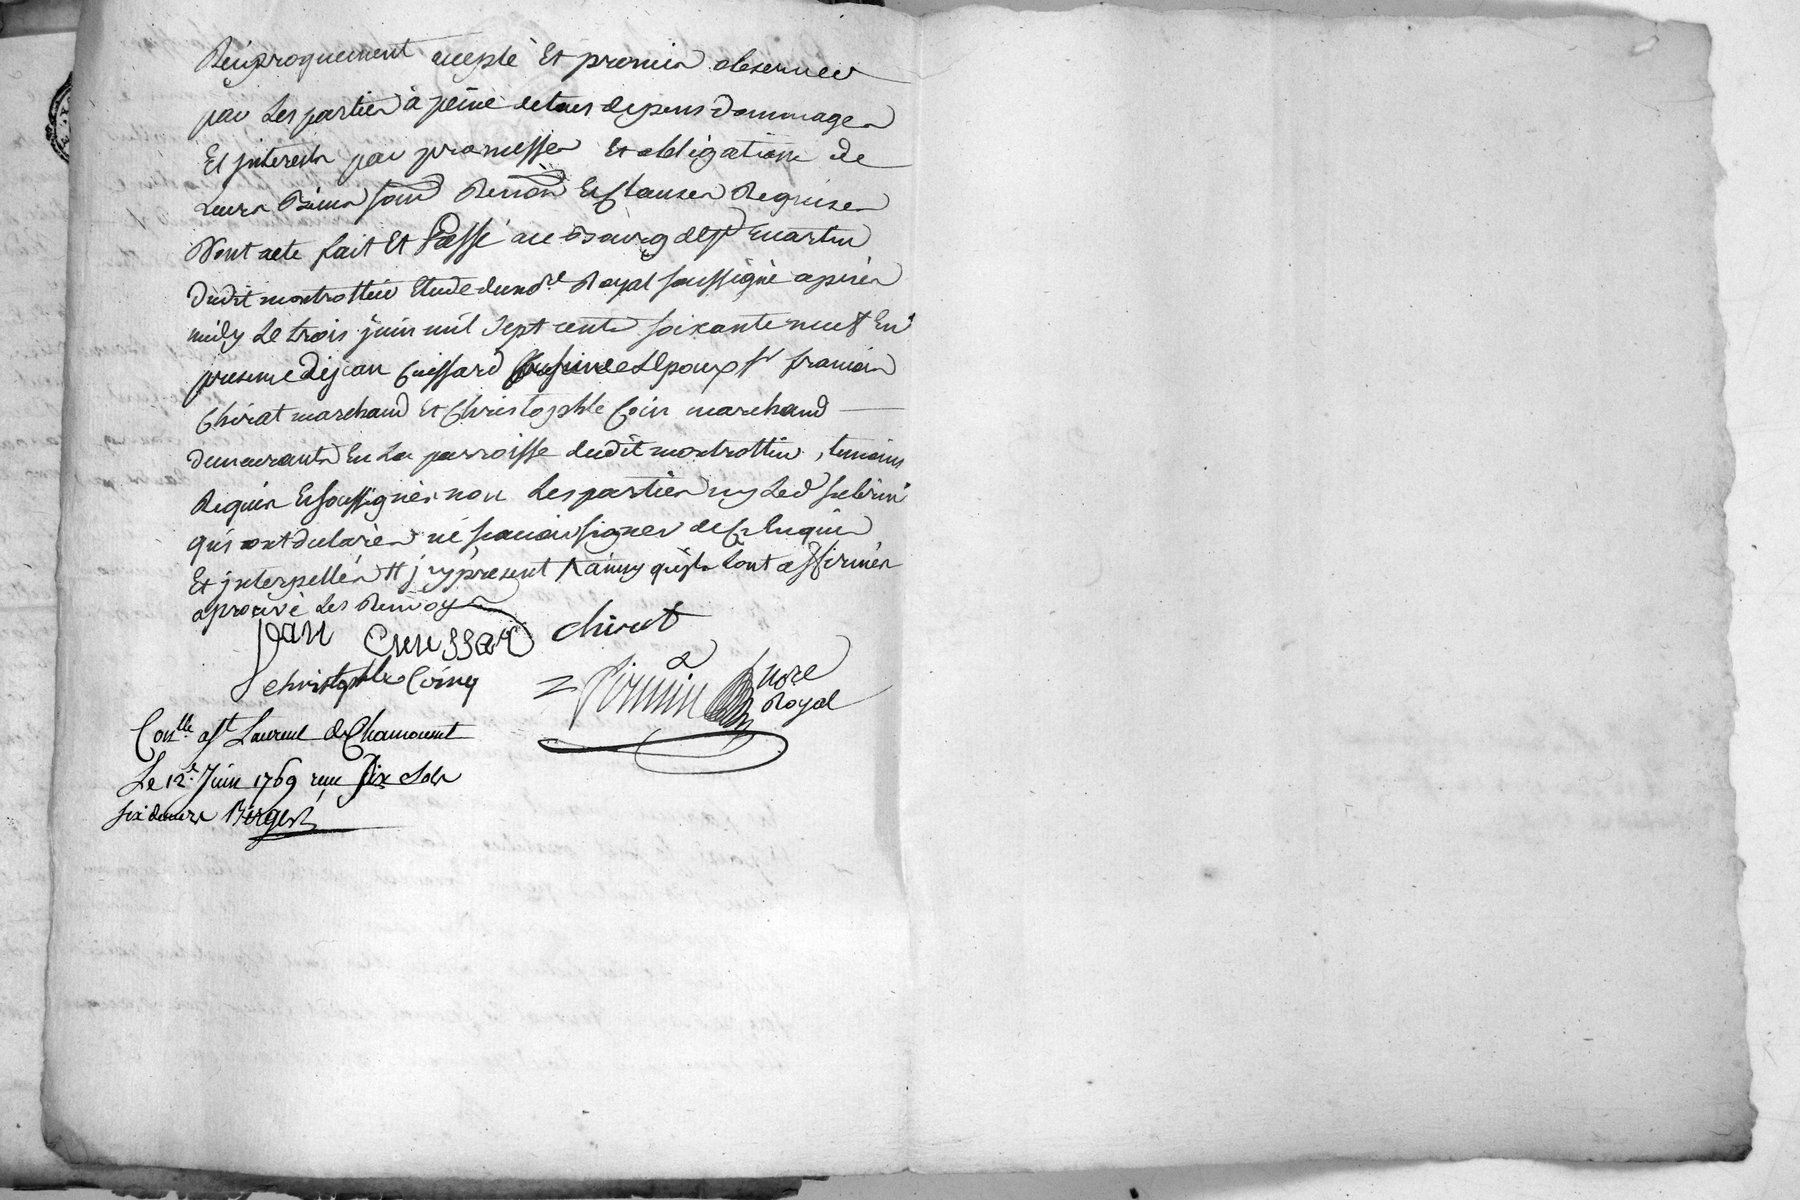 Reciproquement accepté Et promis observer
par Les parties à peine de tous depens dommages
Et jnterests par promesses Et obligation de
Leurs Biens sous Renon Et Clauses Requises
Dont acte fait Et Passé au Bourg de st martin
Dudit montrottier Etude du nore Royal soussigné après
midy Le trois juin mil Sept cents soixante neuf En
presence de jean Cuissard Epoux sr francois
Chirat marchand Et Christophle Coin marchand
demeurants En La parroisse dudit montrottier, temoins
Requis Et soussignés non Les parties ny Led
qui ont declarés né scavoir signer de Ce Enquis
Et jnterpellés jcy présent ainsy quils Lont affirmés
aprouvé Les Renvoys
jean Cueissard chirat
christophle Coing
nore
Royal
Conlle a st Laurent de Chamousset
Le 12e Juin 1769 reçu Six Sols
six deniers Berger